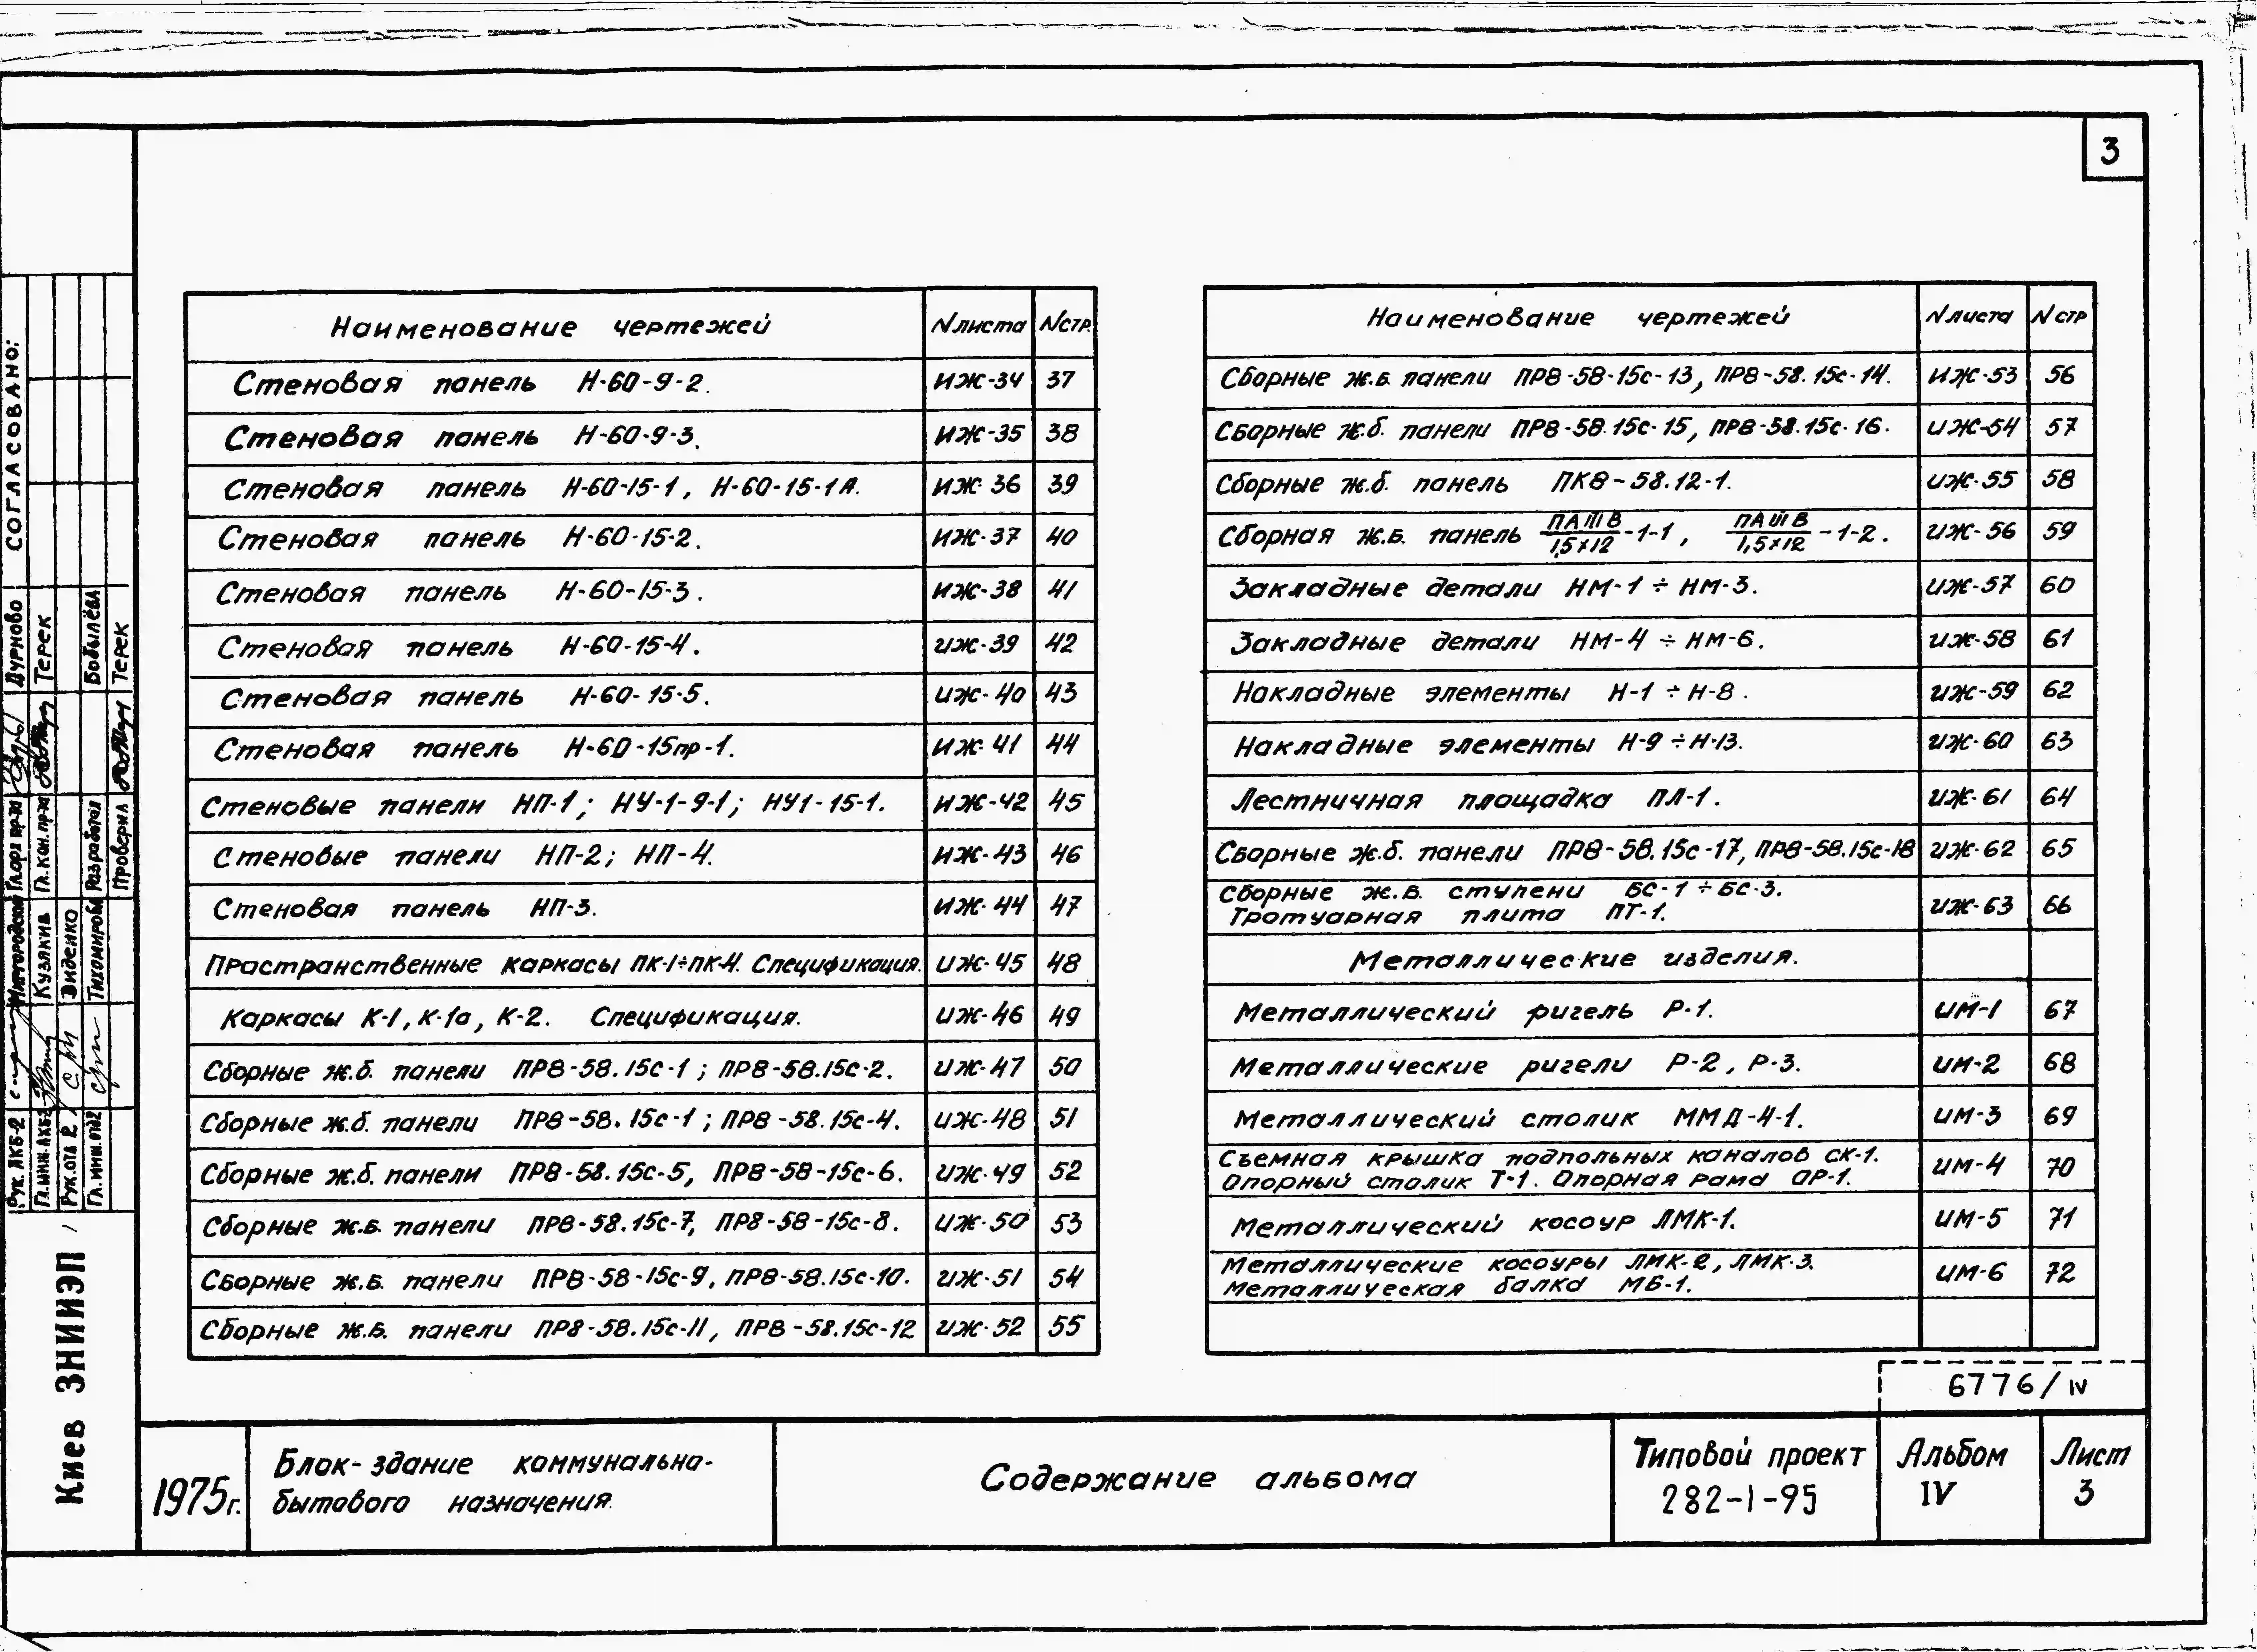 3
Наименование чертежей | N листа | N стр.
Стеновая панель Н-60-9-2. | ИЖ-34 | 37
Стеновая панель Н-60-9-3. | ИЖ-35 | 38
Стеновая панель Н-60-15-1, Н-60-15-1А. | ИЖ-36 | 39
Стеновая панель Н-60-15-2. | ИЖ-37 | 40
Стеновая панель Н-60-15-3. | ИЖ-38 | 41
Стеновая панель Н-60-15-4. | ИЖ-39 | 42
Стеновая панель Н-60-15-5. | ИЖ-40 | 43
Стеновая панель Н-60-15пр-1. | ИЖ-41 | 44
Стеновые панели НП-1; НУ-1-9-1; НУ1-15-1. | ИЖ-42 | 45
Стеновые панели НП-2; НП-4. | ИЖ-43 | 46
Стеновая панель НП-3. | ИЖ-44 | 47
Пространственные каркасы ПК-1÷ПК-4. Спецификация. | ИЖ-45 | 48
Каркасы К-1, К-1а, К-2. Спецификация. | ИЖ-46 | 49
Сборные ж.б. панели ПРВ-58.15с-1; ПРВ-58.15с-2. | ИЖ-47 | 50
Сборные ж.б. панели ПРВ-58.15с-1; ПРВ-58.15с-4. | ИЖ-48 | 51
Сборные ж.б. панели ПРВ-58.15с-5, ПРВ-58-15с-6. | ИЖ-49 | 52
Сборные ж.б. панели ПРВ-58.15с-7, ПРВ-58-15с-8. | ИЖ-50 | 53
Сборные ж.б. панели ПРВ-58-15с-9, ПРВ-58.15с-10. | ИЖ-51 | 54
Сборные ж.б. панели ПРВ-58.15с-11, ПРВ-58.15с-12 | ИЖ-52 | 55
Наименование чертежей | N листа | N стр
Сборные ж.б. панели ПРВ-58-15с-13, ПРВ-58.15с-14. | ИЖ-53 | 56
Сборные ж.б. панели ПРВ-58.15с-15, ПРВ-58.15с-16. | ИЖ-54 | 57
Сборные ж.б. панель ПКВ-58.12-1. | ИЖ-55 | 58
Сборная ж.б. панель ПАIIIВ/1,5×12-1-1, ПАIIIВ/1,5×12-1-2. | ИЖ-56 | 59
Закладные детали НМ-1÷НМ-3. | ИЖ-57 | 60
Закладные детали НМ-4÷НМ-6. | ИЖ-58 | 61
Накладные элементы Н-1÷Н-8. | ИЖ-59 | 62
Накладные элементы Н-9÷Н-13. | ИЖ-60 | 63
Лестничная площадка ПЛ-1. | ИЖ-61 | 64
Сборные ж.б. панели ПРВ-58.15с-17, ПРВ-58.15с-18 | ИЖ-62 | 65
Сборные ж.б. ступени БС-1÷БС-3.
Тротуарная плита ПТ-1. | ИЖ-63 | 66
Металлические изделия.
Металлический ригель Р-1. | ИМ-1 | 67
Металлические ригели Р-2, Р-3. | ИМ-2 | 68
Металлический столик ММД-4-1. | ИМ-3 | 69
Съемная крышка подпольных каналов СК-1.
Опорный столик Т-1. Опорная рама ОР-1. | ИМ-4 | 70
Металлический косоур ЛМК-1. | ИМ-5 | 71
Металлические косоуры ЛМК-2, ЛМК-3.
Металлическая балка МБ-1. | ИМ-6 | 72
6776/IV
1975г.
Блок-здание коммунально-
бытового назначения.
Содержание альбома
Типовой проект
282-1-95
Альбом
IV
Лист
3
СОГЛАСОВАНО:
Рук. АКБ-2 | Гл.арх. пр-та | Дурново
Гл.инж. АКБ-2 | Кузякив | Гл.кон.пр-та | Терек
Рук.отд 2 | Диденко
Гл.инж.отд2 | Тихомирова | Разработал | Бобылёва
Проверил | Терек
Киев ЗНИИЭП